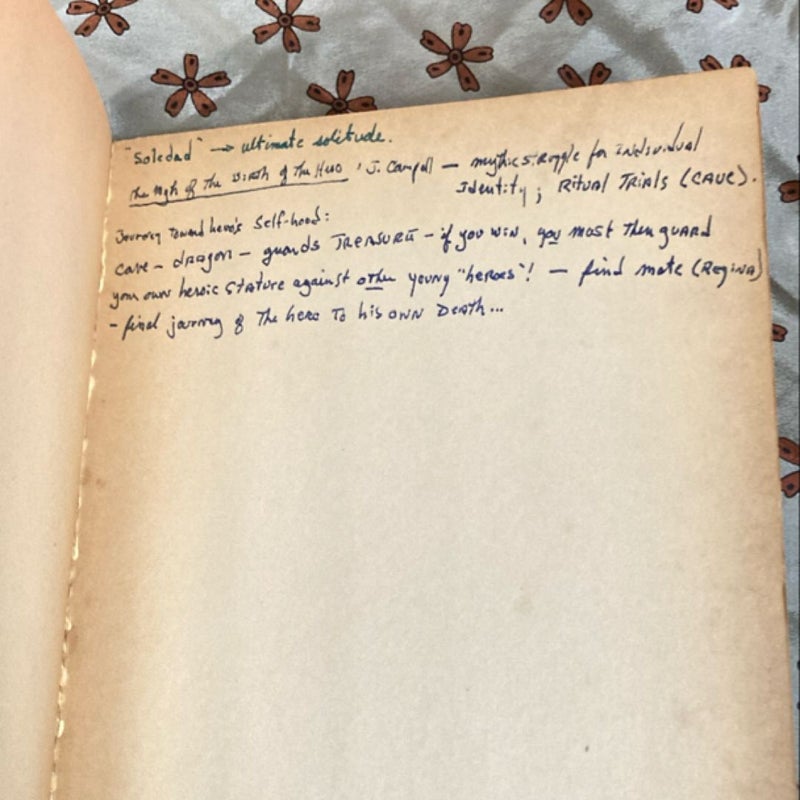 "Soledad" → ultimate solitude.
The Myth of The Birth of The Hero, J. Campell — mythic struggle for individual
Identity; Ritual Trials (CAVE).
Journey Toward hero's Self-hood:
cave - dragon - guards TREASURE - if you win, you must Then guard
your own heroic stature against other young "heroes"! — find mate (Regina)
- final journey of The hero To his own Death...